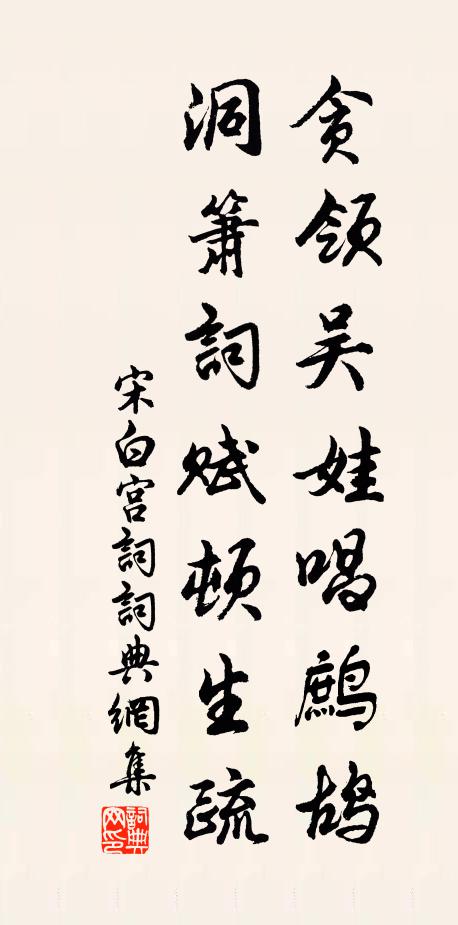 贪领吴娃唱鹧鸪
洞箫詞赋顿生疏
宋白宫詞詞典網集
詞典网印